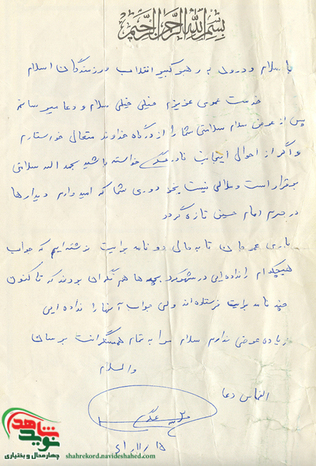 بسم الله الرحمن الرحیم
با سلام و درود به رهبر کبیر انقلاب و رزمندگان اسلام
خدمت عموی عزیزم خیلی خیلی سلام و دعا میرسانم
پس از عرض سلام سلامتی شما را از درگاه خداوند متعال خواستارم
و اگر از احوالی اینجانب خواسته باشید بحمد الله سلامتی
برقرار است و ملالی نیست بجز دوری شما که امیدوارم دیدارها
در حرم امام حسین تازه گردد
باری عمو جان تا به حالی دو نامه برایت نوشته‌ایم که جواب
هیچکدام را نداده‌ای در شهرود بچه‌ها هم نگران بودند که تا کنون
چند نامه برایت فرستاده‌اند ولی جواب آنها را نداده ایی
زیاده عرضی ندارم سلام مرا به تمام همسنگرانت برسان
والسلام
التماس دعا
نوید شاهد
چهارمحال و بختیاری
shahrekord.navideshahed.com